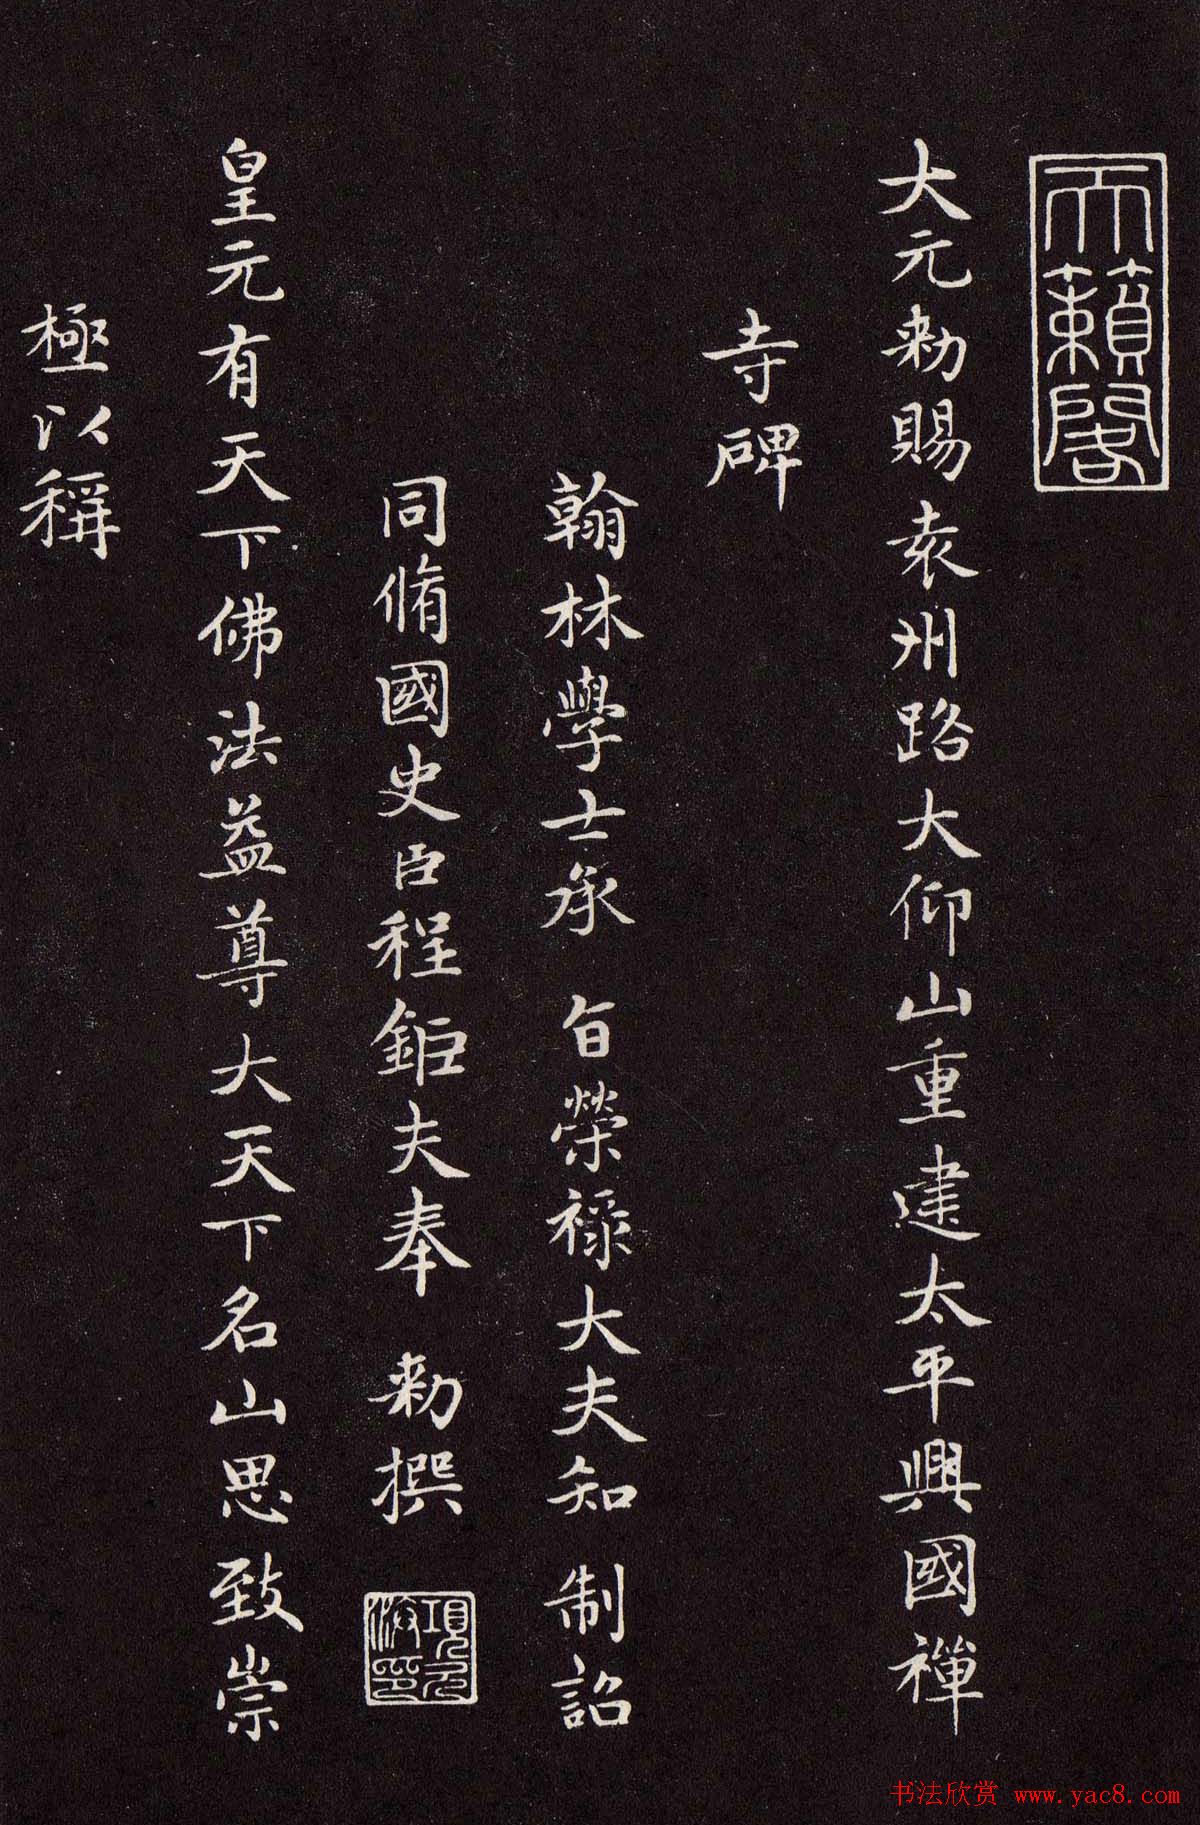 天籟閣
大元勑賜袁州路大仰山重建太平興國禪
寺碑
翰林學士承旨榮禄大夫知制詔
同脩國史臣程鉅夫奉勑撰
項元汴印
皇元有天下佛法益尊大天下名山思致崇
極以稱
书法欣赏 www.yac8.com